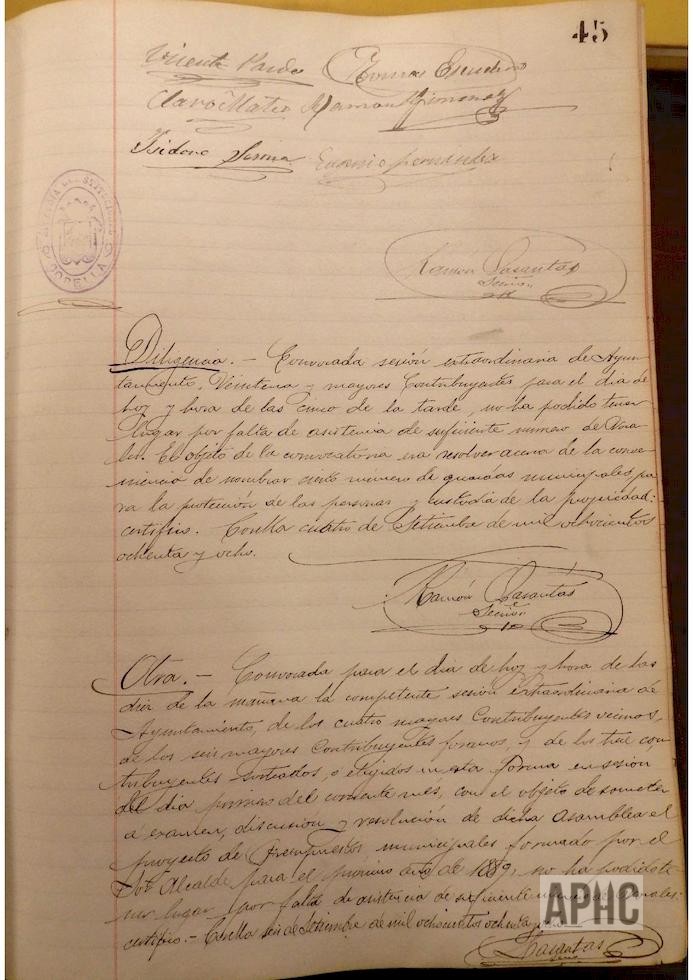 45
Vicente Pardo Tomas Escudero
Claro Mateo Ramon Gimenez
Isidoro Eugenio Fernandez
CORELLA
Ramón Lasantas
Secrio
Diligencia.- Convocada sesión extraordinaria de Ayun-
tamiento, Veintena y mayores Contribuyentes para el dia de
hoy y hora de las cinco de la tarde, no ha podido tener
lugar por falta de asistencia de suficiente numero de Voca-
les. El objeto de la convocatoria era resolver acerca de la conve-
niencia de nombrar cierto numero de guardas municipales pa-
ra la protección de las personas y custodia de la propiedad:
certifico. Corella cuatro de Setiembre de mil ochocientos
ochenta y ocho.
Ramón Lasantas
Secrio
Otra.- Convocada para el dia de hoy y hora de las
diez de la mañana la competente sesión extraordinaria de
Ayuntamiento, de los cuatro mayores Contribuyentes vecinos,
de los seis mayores Contribuyentes foranos, y de los trece con-
tribuyentes sorteados, ó elejidos en esta forma en sesión
del dia primero del corriente mes, con el objeto de someter
á examen, discusion y resolución de dicha asamblea el
proyecto de Presupuestos municipales formado por el
Sor Alcalde para el próximo año de 1889, no ha podido te-
ner lugar por falta de asistencia de suficiente numero de Vocales:
certifico.- Corella seis de Setiembre de mil ochocientos ochenta y ocho.
APHC
Lasantas
Secrio